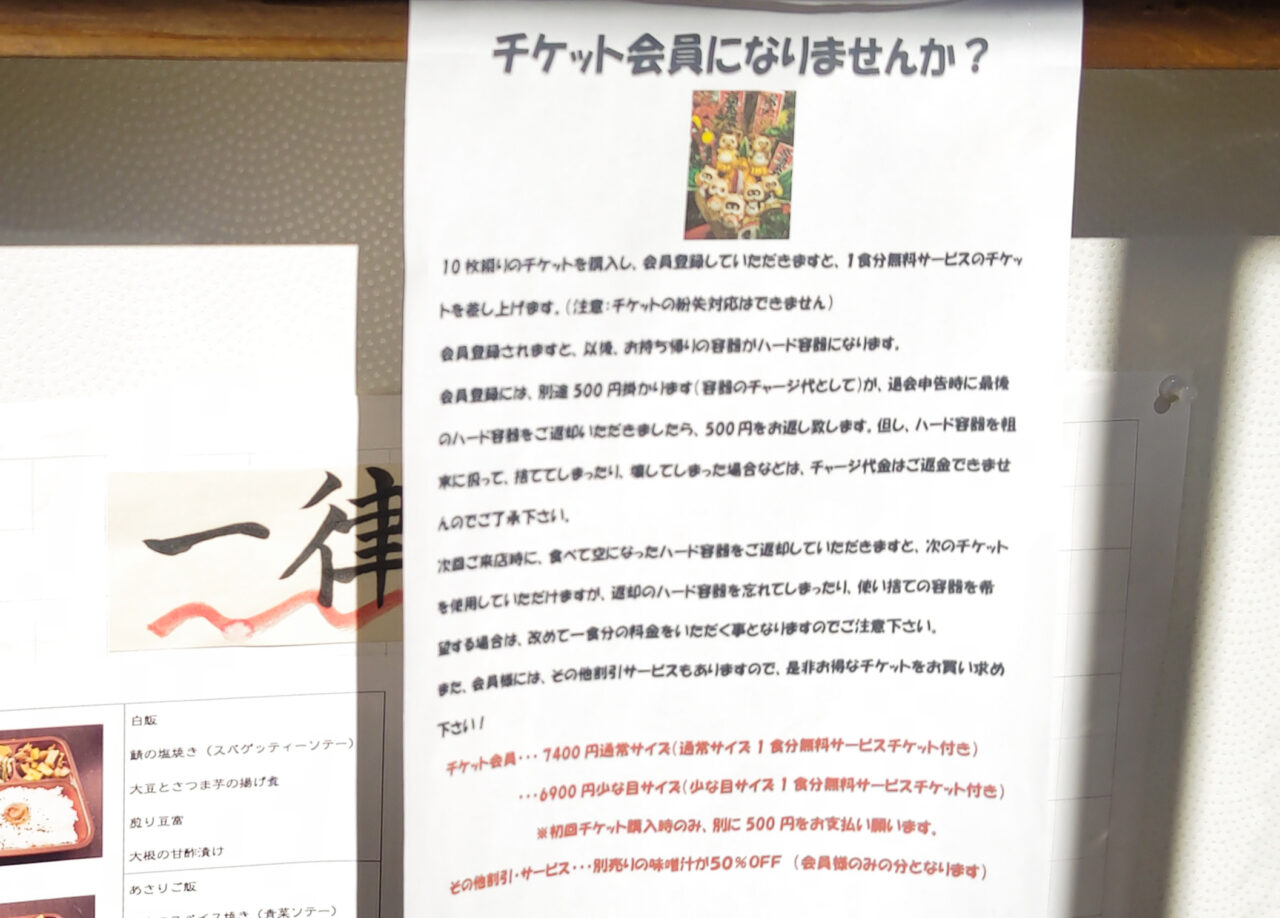 チケット会員になりませんか?
10枚綴りのチケットを購入し、会員登録していただきますと、1食分無料サービスのチケッ
トを差し上げます。(注意:チケットの紛失対応はできません)
会員登録されますと、以後、お持ち帰りの容器がハード容器になります。
会員登録には、別途500円掛かります(容器のチャージ代として)が、退会申告時に最後
のハード容器をご返却いただきましたら、500円をお返し致します。但し、ハード容器を粗
末に扱って、捨ててしまったり、壊してしまった場合などは、チャージ代金はご返金できませ
んのでご了承下さい。
次回ご来店時に、食べて空になったハード容器をご返却していただきますと、次のチケット
を使用していただけますが、返却のハード容器を忘れてしまったり、使い捨ての容器を希
望する場合は、改めて一食分の料金をいただく事となりますのでご注意下さい。
また、会員様には、その他割引サービスもありますので、是非お得なチケットをお買い求め
下さい!
チケット会員・・・7400円通常サイズ(通常サイズ1食分無料サービスチケット付き)
・・・6900円少な目サイズ(少な目サイズ1食分無料サービスチケット付き)
※初回チケット購入時のみ、別に500円をお支払い願います。
その他割引・サービス・・・別売りの味噌汁が50%OFF (会員様のみの分となります)
一律
白飯
鯖の塩焼き(スパゲッティーソテー)
大豆とさつま芋の揚げ煮
煎り豆富
大根の甘酢漬け
あさりご飯
スパイス焼き(青菜ソテー)